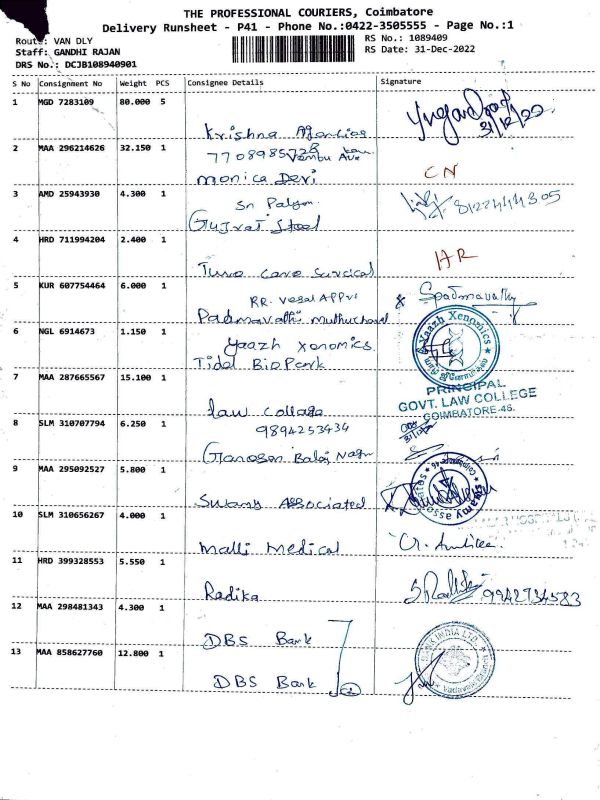 THE PROFESSIONAL COURIERS, Coimbatore
Delivery Runsheet - P41 - Phone No.:0422-3505555 - Page No.:1
Route: VAN DLY
RS No.: 1089409
Staff: GANDHI RAJAN
RS Date: 31-Dec-2022
DRS No.: DCJB108940901
S No Consignment No Weight PCS Consignee Details Signature
1 MGD 7283109 80.000 5
Krishna Agencies
31/12/22
2 MAA 296214626 32.150 1
7708985728
Monica Devi
CN
3 AMD 25943930 4.300 1
Gujrat Steel
8122444305
4 HRD 711994204 2.400 1
HR
5 KUR 607754464 6.000 1
Padmavathi Muthuchand
Spadmavathy
6 NGL 6914673 1.150 1
Yaazh Xenomics
Tidel BioPark
Yaazh Xenomics
7 MAA 287665567 15.100 1
Law College
PRINCIPAL
GOVT. LAW COLLEGE
COIMBATORE-46.
8 SLM 310707794 6.250 1
9894253434
Ganesan Balaj Nagar
9 MAA 295092527 5.800 1
Swamy Associated
10 SLM 310656267 4.000 1
Malli Medical
11 HRD 399328553 5.550 1
Radika
9942734583
12 MAA 298481343 4.300 1
DBS Bank
13 MAA 858627760 12.800 1
DBS Bank
BANK INDIA LTD.